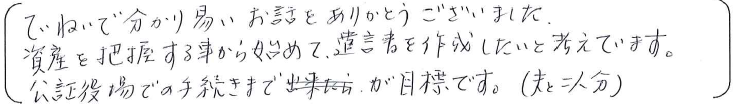 ていねいで分かり易いお話をありがとうございました.
資産を把握する事から始めて、遺言書を作成したいと考えています。
公証役場での手続きまで出来たら が目標です。(夫と二人分)